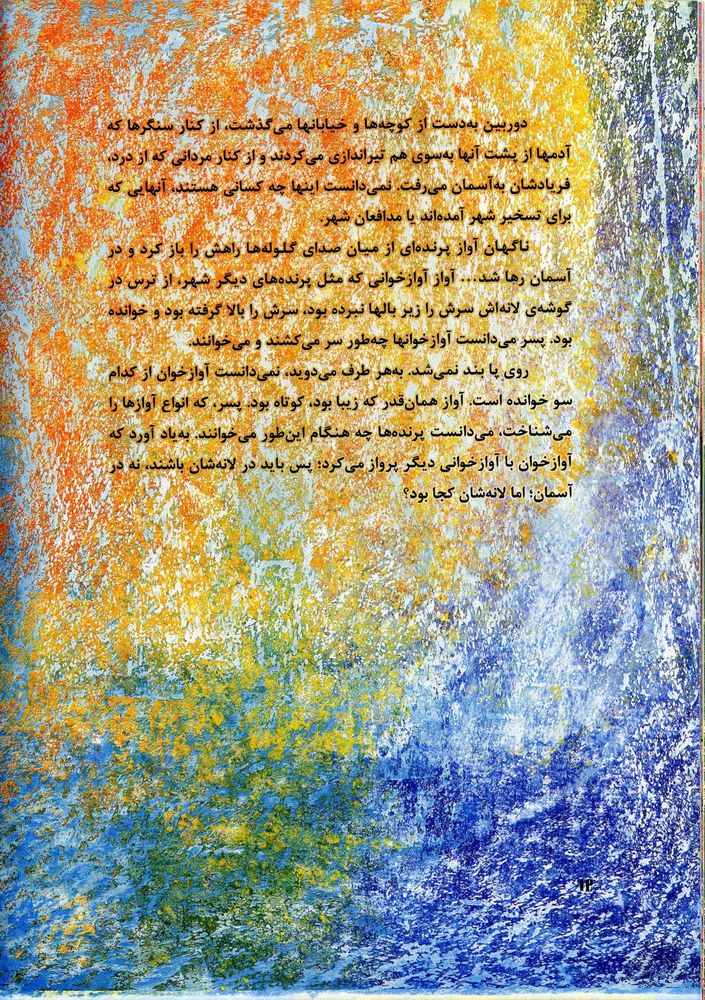 دوربین به‌دست از کوچه‌ها و خیابانها می‌گذشت، از کنار سنگرها که
آدمها از پشت آنها به‌سوی هم تیراندازی می‌کردند و از کنار مردانی که از درد،
فریادشان به‌آسمان می‌رفت. نمی‌دانست اینها چه کسانی هستند، آنهایی که
برای تسخیر شهر آمده‌اند یا مدافعان شهر.
ناگهان آواز پرنده‌ای از میان صدای گلوله‌ها راهش را باز کرد و در
آسمان رها شد... آواز آوازخوانی که مثل پرنده‌های دیگر شهر، از ترس در
گوشه‌ی لانه‌اش سرش را زیر بالها نبرده بود، سرش را بالا گرفته بود و خوانده
بود. پسر می‌دانست آوازخوانها چه‌طور سر می‌کشند و می‌خوانند.
روی پا بند نمی‌شد. به‌هر طرف می‌دوید، نمی‌دانست آوازخوان از کدام
سو خوانده است. آواز همان‌قدر که زیبا بود، کوتاه بود. پسر، که انواع آوازها را
می‌شناخت، می‌دانست پرنده‌ها چه هنگام این‌طور می‌خوانند. به‌یاد آورد که
آوازخوان با آوازخوانی دیگر پرواز می‌کرد؛ پس باید در لانه‌شان باشند، نه در
آسمان؛ اما لانه‌شان کجا بود؟